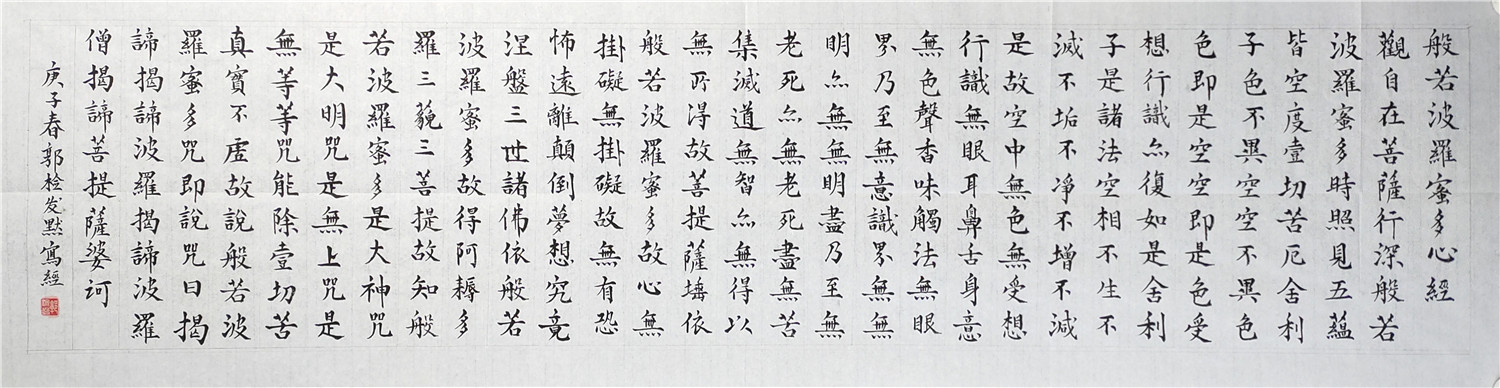 般若波羅蜜多心經
觀自在菩薩行深般若
波羅蜜多時照見五蘊
皆空度壹切苦厄舍利
子色不異空空不異色
色即是空空即是色受
想行識亦復如是舍利
子是諸法空相不生不
滅不垢不凈不增不減
是故空中無色無受想
行識無眼耳鼻舌身意
無色聲香味觸法無眼
界乃至無意識界無無
明亦無無明盡乃至無
老死亦無老死盡無苦
集滅道無智亦無得以
無所得故菩提薩埵依
般若波羅蜜多故心無
掛礙無掛礙故無有恐
怖遠離顛倒夢想究竟
涅盤三世諸佛依般若
波羅蜜多故得阿耨多
羅三藐三菩提故知般
若波羅蜜多是大神咒
是大明咒是無上咒是
無等等咒能除壹切苦
真實不虛故說般若波
羅蜜多咒即說咒曰揭
諦揭諦波羅揭諦波羅
僧揭諦菩提薩婆訶
庚子春郭栓发默寫經